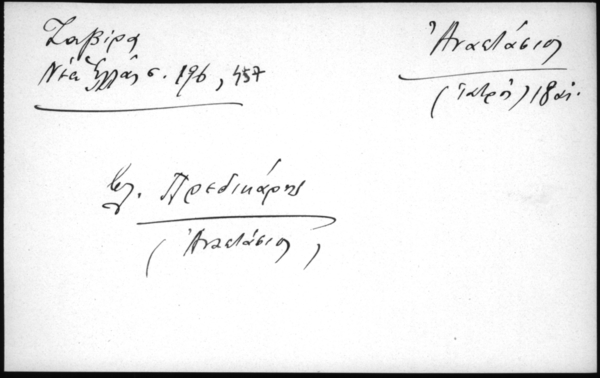 Ζαβίρα
Νέα Ἑλλάς σ. 196, 457
Ἀναστάσιος
(Ἰατρός) 18 αἰ.
Βλ. Πρεδικάρης
(Ἀναστάσιος)